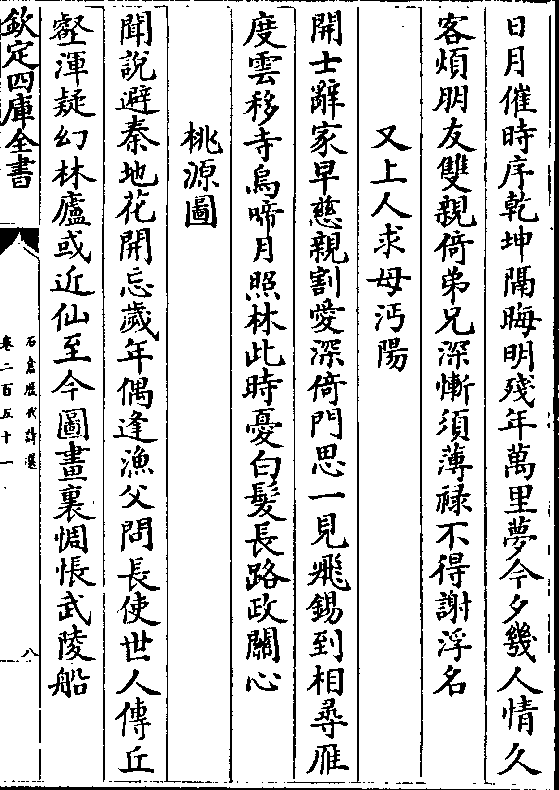 日月催時序乾坤隔晦明殘年萬里夢今夕幾人情久
客煩朋友雙親倚弟兄深慚須薄祿不得謝浮名
又上人求母沔陽
開士辭家早慈親割愛深倚門思一見飛錫到相尋雁
度雲移寺烏啼月照林此時憂白髮長路政關心
桃源圖
聞說避秦地花開忘歲年偶逢漁父問長使世人傳丘
壑渾疑幻林廬或近仙至今圖畫裏惆悵武陵船
欽定四庫全書
石倉歷代詩選
卷二百五十一
八